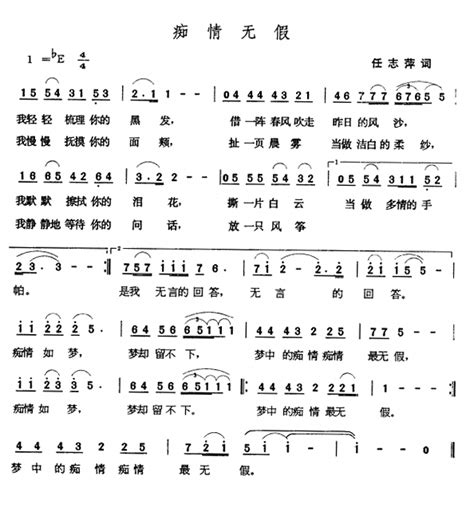 痴情无假
1=♭E 4/4
任志萍 词
15 54 31 53 | 2·1 1 - | 04 44 43 21 | 46 777 6765 5 |
我轻轻 梳理 你的 黑 发， 借 一阵 春风 吹走 昨日 的风 沙，
我慢慢 抚摸 你的 面 颊， 扯 一页 晨 雾 当做 洁白的 柔 纱，
16 65 42 64 | 3·2 2 - | 05 55 54 32 | 05 54 311 52 |
我默默 擦拭 你的 泪 花， 撕 一片 白 云 当 做 多情的 手
我静静地 等待 你的 问 话， 放 一只 风 筝
23· 3 - :| 757 iii 76· | 7i 2·2 | 2i 75i i - |
帕。 是我 无言的 回答， 无 言 的 回 答。
ii 22 25· | 64 56 65111 | 44 43 22 25 | 77 5i i - |
痴情 如 梦， 梦却 留不 下， 梦中 的痴 情痴情 最无 假，
ii 22 25· | 64 56 65111 | 44 43 22 221 | 1 - - - :|
痴情 如 梦， 梦却 留不 下。 梦中 的痴 情最无 假。
44 43 2 25 | 72 i | 5i i - | i - - - |
梦中 的痴 情 痴情 最 无 假。